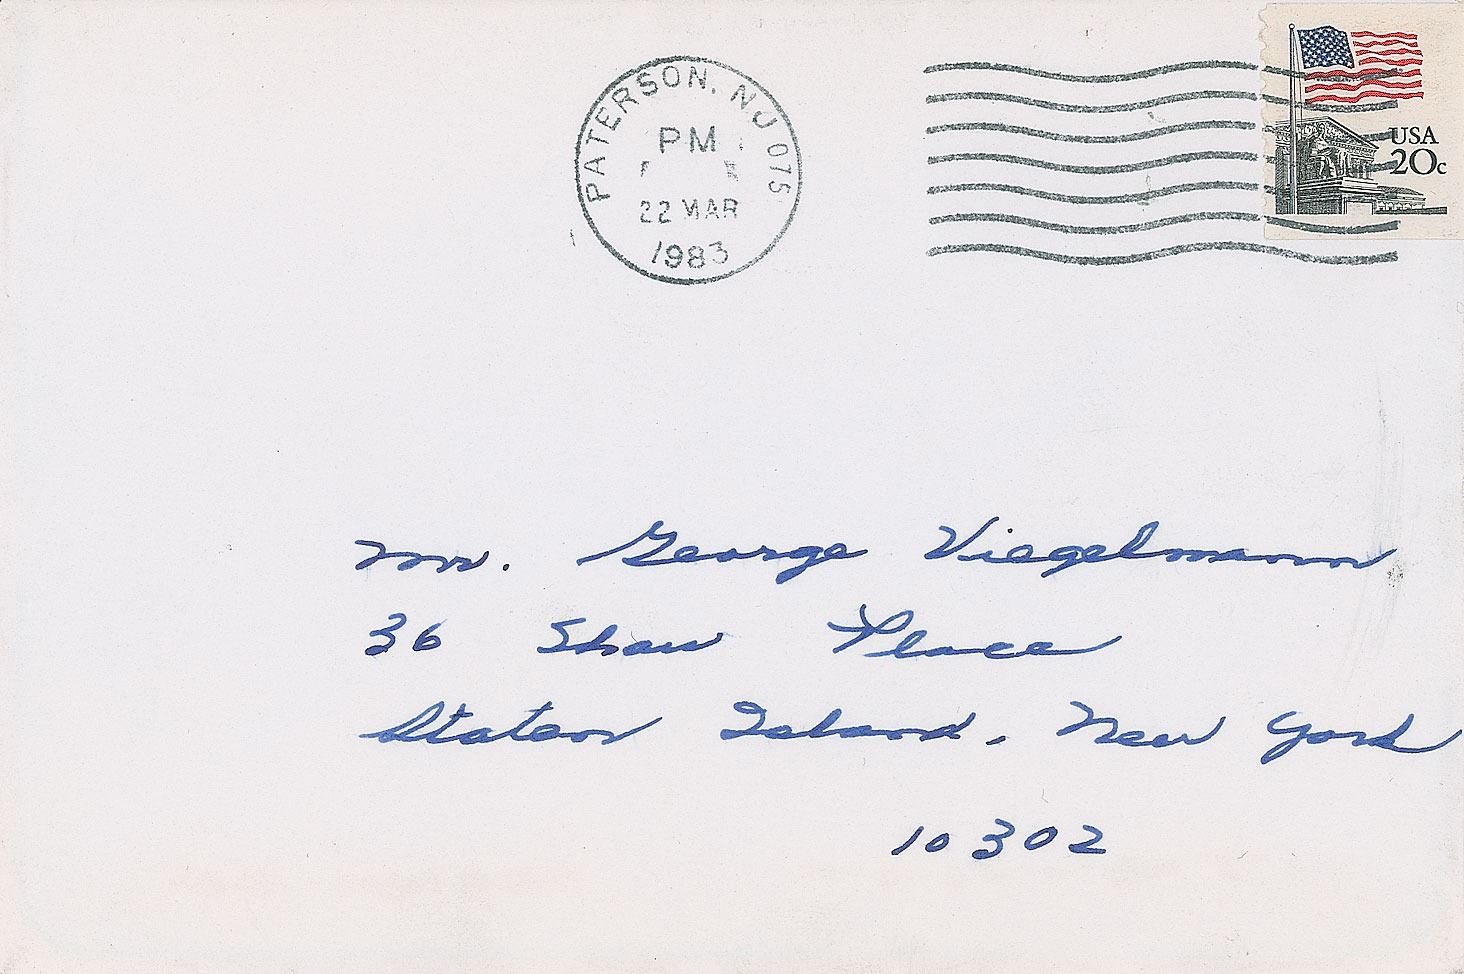 PATERSON, NJ 075
PM
22 MAR
1983
USA
20c
Mr. George Viegelmann
36 Shaw Place
Staten Island, New York
10302